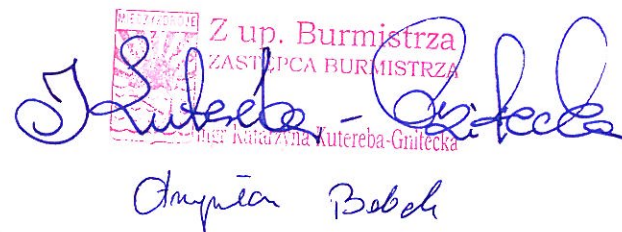 MIĘDZYZDROJE
Z up. Burmistrza
ZASTĘPCA BURMISTRZA
mgr Katarzyna Kutereba-Gnitecka
Kutereba-Gnitecka